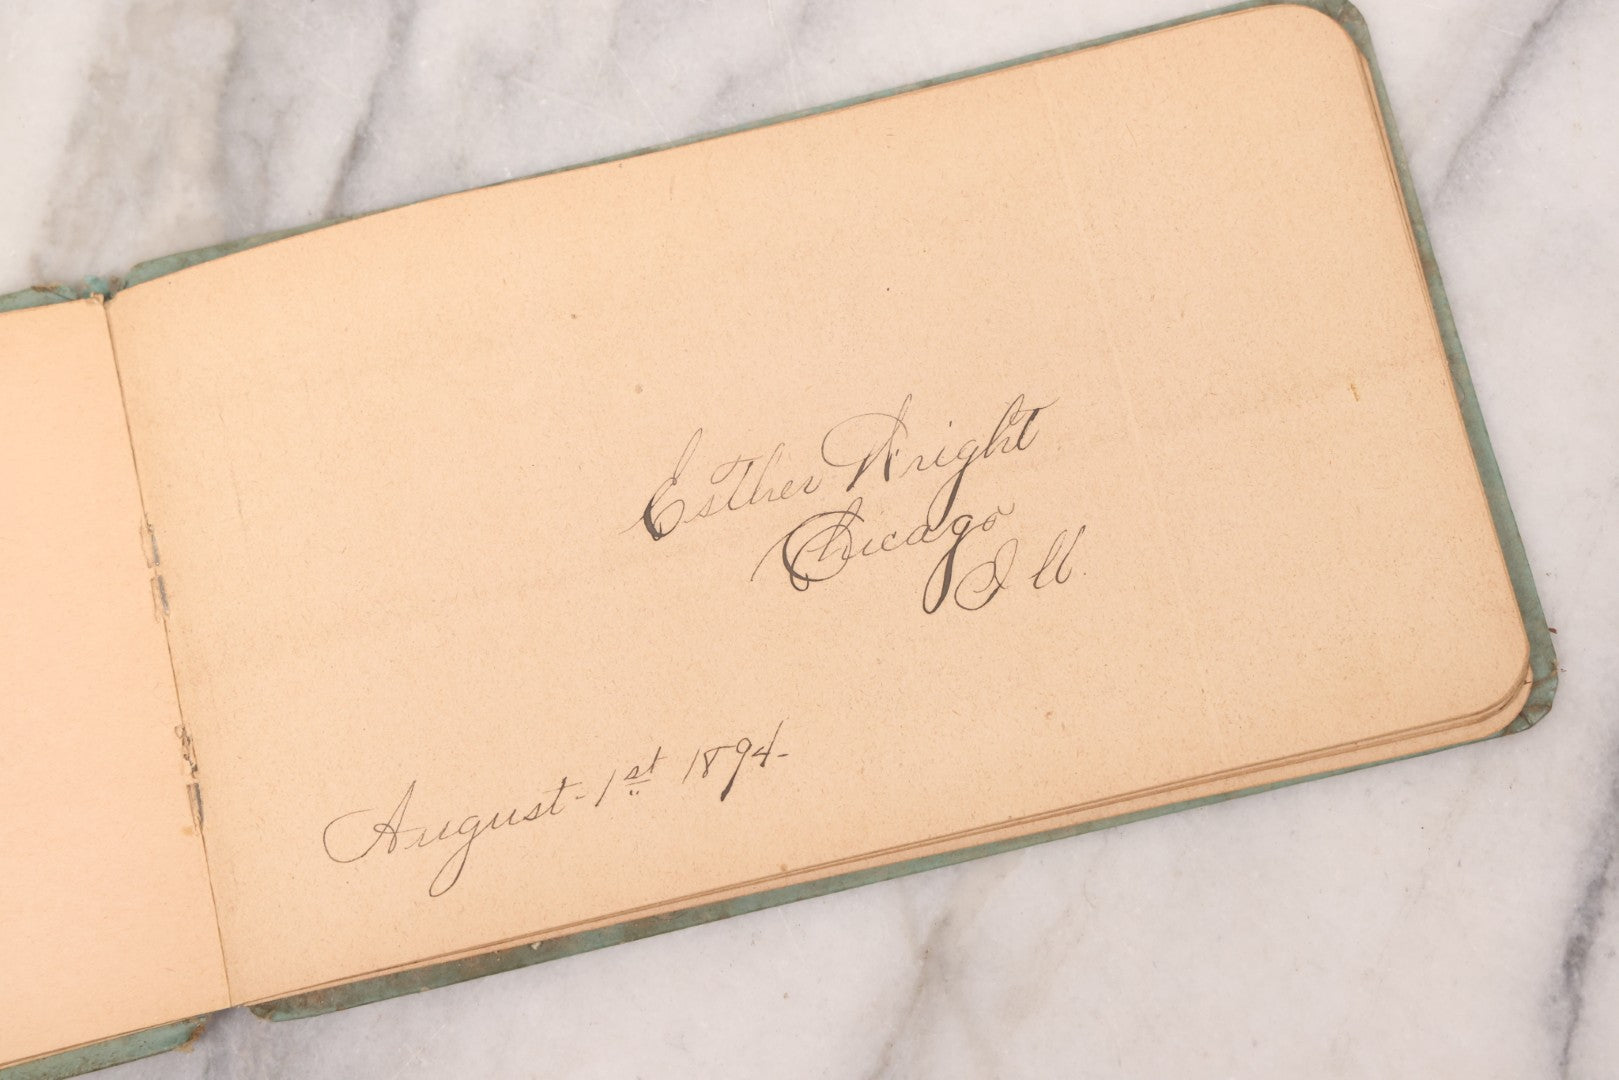 Esther Wright
Chicago
Ill.
August-1st 1894-